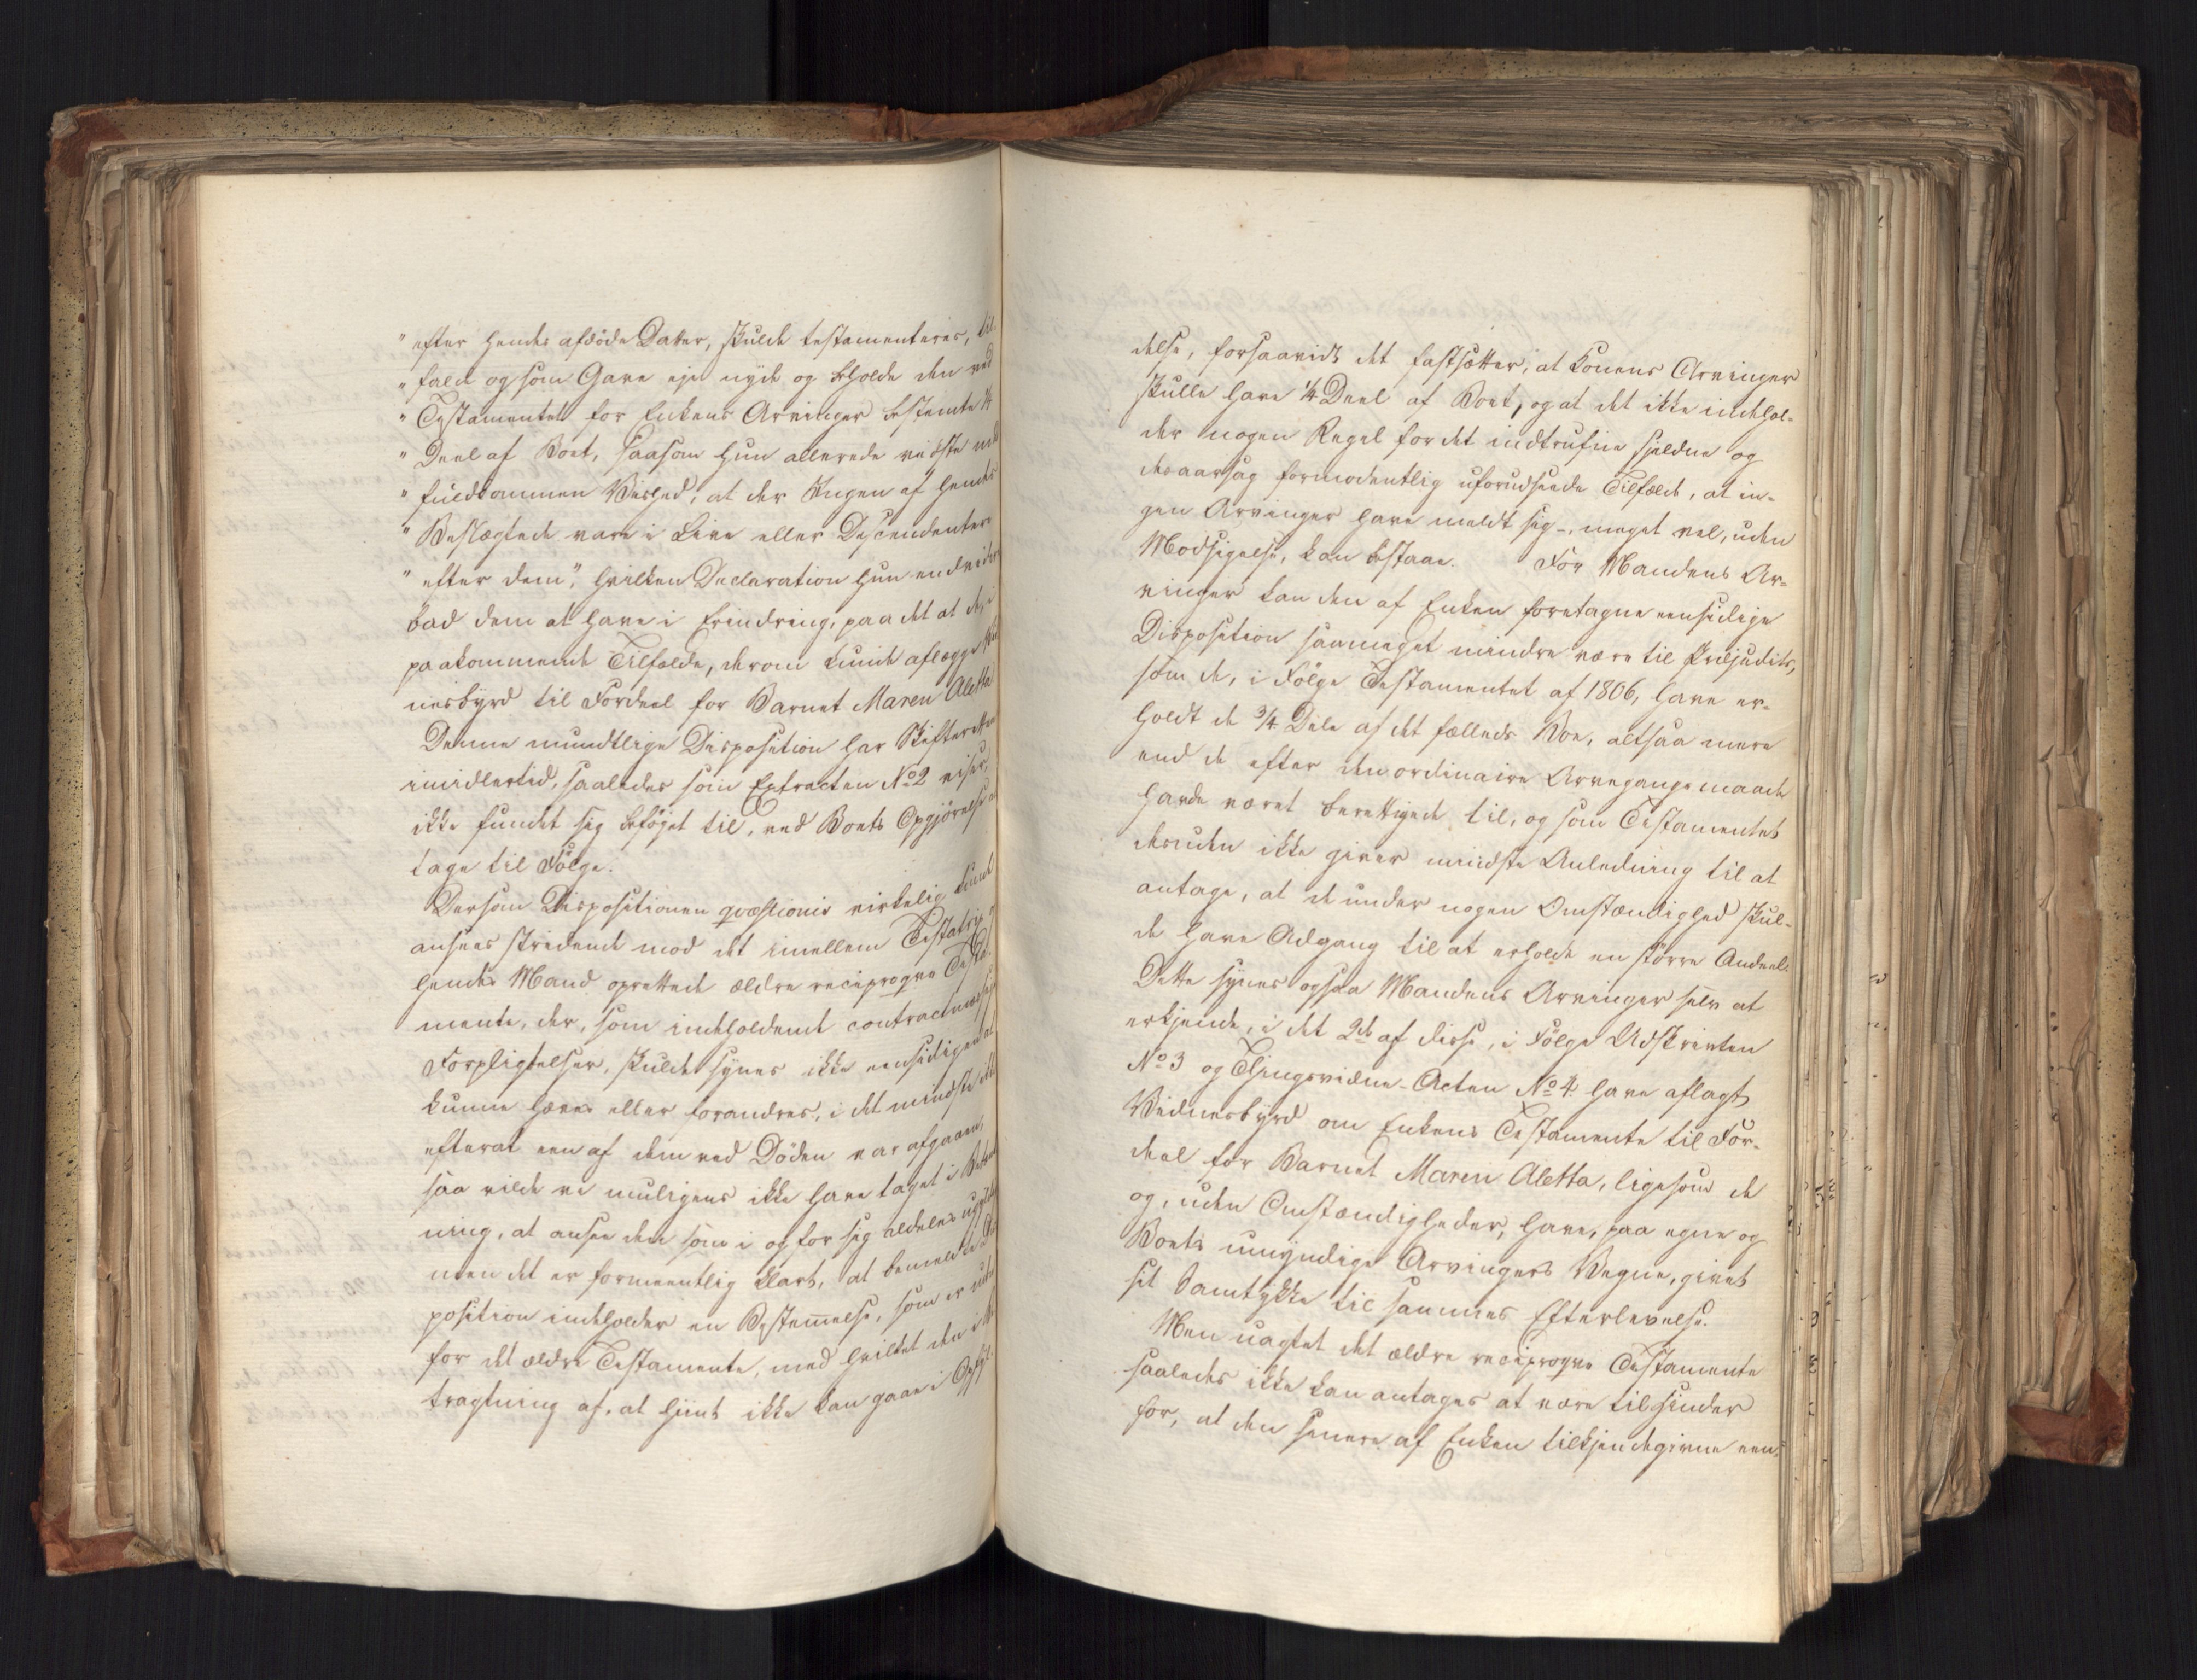 " efter hendes afdöde Datter, skulde testamenteres, til-
" falde og som Gave eje nyde og beholde den ved
" Testamentet for Enkens Arvinger bestemte ¼
" Deel af Boet, saasom hun allerede vidste med
" fuldkommen Vished, at der Ingen af hendes
" Beslægtede vare i Live eller Descendenter
" efter dem", hvilken Declaration hun endvidere
bad dem at have i Erindring, paa det at de, i
paakommende Tilfælde, derom kunde aflægge Vid-
nesbyrd til Fordeel for Barnet Maren Aletta
Denne mundtlige Disposition har Skifteretten
imidlertid, saaledes som Extracten No 2 viser,
ikke fundet sig beföjet til, ved Boets Opgjörelse at
tage til Fölge.
Dersom Dispositionen qvæstionis virkelig kunde
ansees stridende mod det imellem Testatrix og
hendes Mand oprettede ældre reciproqve Testa-
mente, der, som indeholdende contractmæssige
Forpligtelser, skulde synes ikke eensidigen at
kunne hæves eller forandres, i det mindste ikke
efterat een af dem ved Döden var afgaaen,
saa vilde vi muligens ikke have taget i Betænk-
ning, at ansee den som i og for sig aldeles ugyldig
men det er formeentlig klart, at bemeldte Dis-
position indeholder en Bestemmelse, som er uden
for det ældre Testamente, med hvilket den i Be-
tragtning af, at hiint ikke kan gaae i Opfyl-
delse, forsaavidt det fastsætter, at Konens Arvinger
skulle have ¼ Deel af Boet, og at det ikke indehol-
der nogen Regel for det indtrufne sjeldne og
desaarsag formodentlig uforudseede Tilfælde, at in-
gen Arvinger have meldt sig -, meget vel, uden
Modsigelse, kan bestaae. For Mandens Ar-
vinger kan den af Enken foretagne eensidige
Disposition saameget mindre være til Præjudits,
som de, i Fölge Testamentet af 1806, have er-
holdt de ¾ Dele af det fælleds Boe, altsaa mere
end de efter den ordinaire Arvegangsmaade
havde været berettigede til, og som Testamentet
desuden ikke giver mindste Anledning til at
antage, at de under nogen Omstændighed skul-
de have Adgang til at erholde en större Andeel.
Dette synes ogsaa Mandens Arvinger selv at
erkjende, i det 2de af disse, i Fölge Udskrivten
No 3 og Thingsvidne-Acten No 4 have aflagt
Vidnesbyrd om Enkens Testamente til For-
deel for Barnet Maren Aletta, ligesom de
og, uden Omstændigheder, have, paa egne og
Boets umyndige Arvingers Vegne, givet
sit Samtykke til sammes Efterlevelse.
Men uagtet det ældre reciproqve Testamente
saaledes ikke kan antages at være til Hinder
for, at den senere af Enken tilkjendegivne een-